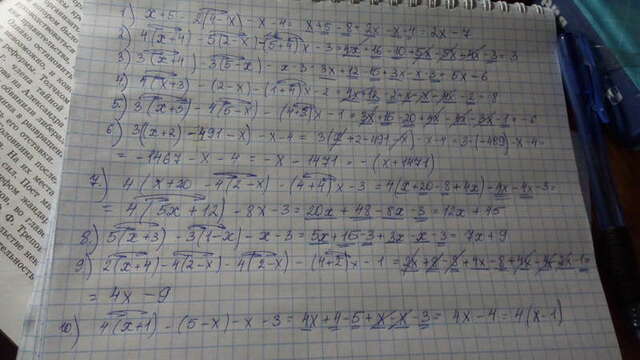 1) x+5 - 2(4-x) - x - 4 = x+5-8+2x-x-4 = 2x-7
2) 4(x+4) - 5(2-x) - (5+4)x - 3 = 4x+16-10+5x-5x-4x-3 = 3
3) 3(x+4) - 3(5-x) - x - 3 = 3x+12-15+3x-x-3 = 5x-6
4) 4(x+3) - (2-x) - (1+4)x - 2 = 4x+12-2+x-x-4x-2 = 8
5) 3(x+5) - 4(5-x) - (4+3)x - 1 = 3x+15-20+4x-4x-3x-1 = -6
6) 3((x+2) - 491 - x) - x - 4 = 3(x+2-491-x) - x - 4 = 3·(-489) - x - 4 =
= -1467 - x - 4 = -x - 1471 = -(x+1471)
7) 4(x+20 - 4(2-x)) - (4+4)x - 3 = 4(x+20-8+4x) - 4x - 4x - 3 =
= 4(5x+12) - 8x - 3 = 20x + 48 - 8x - 3 = 12x + 45
8) 5(x+3) - 3(1-x) - x - 3 = 5x+15-3+3x-x-3 = 7x+9
9) 2(x+4) - 4(2-x) - 4(2-x) - (4+2)x - 1 = 2x+8-8+4x-8+4x-4x-2x-1=
= 4x - 9
10) 4(x+1) - (5-x) - x - 3 = 4x+4-5+x-x-3 = 4x-4 = 4(x-1)